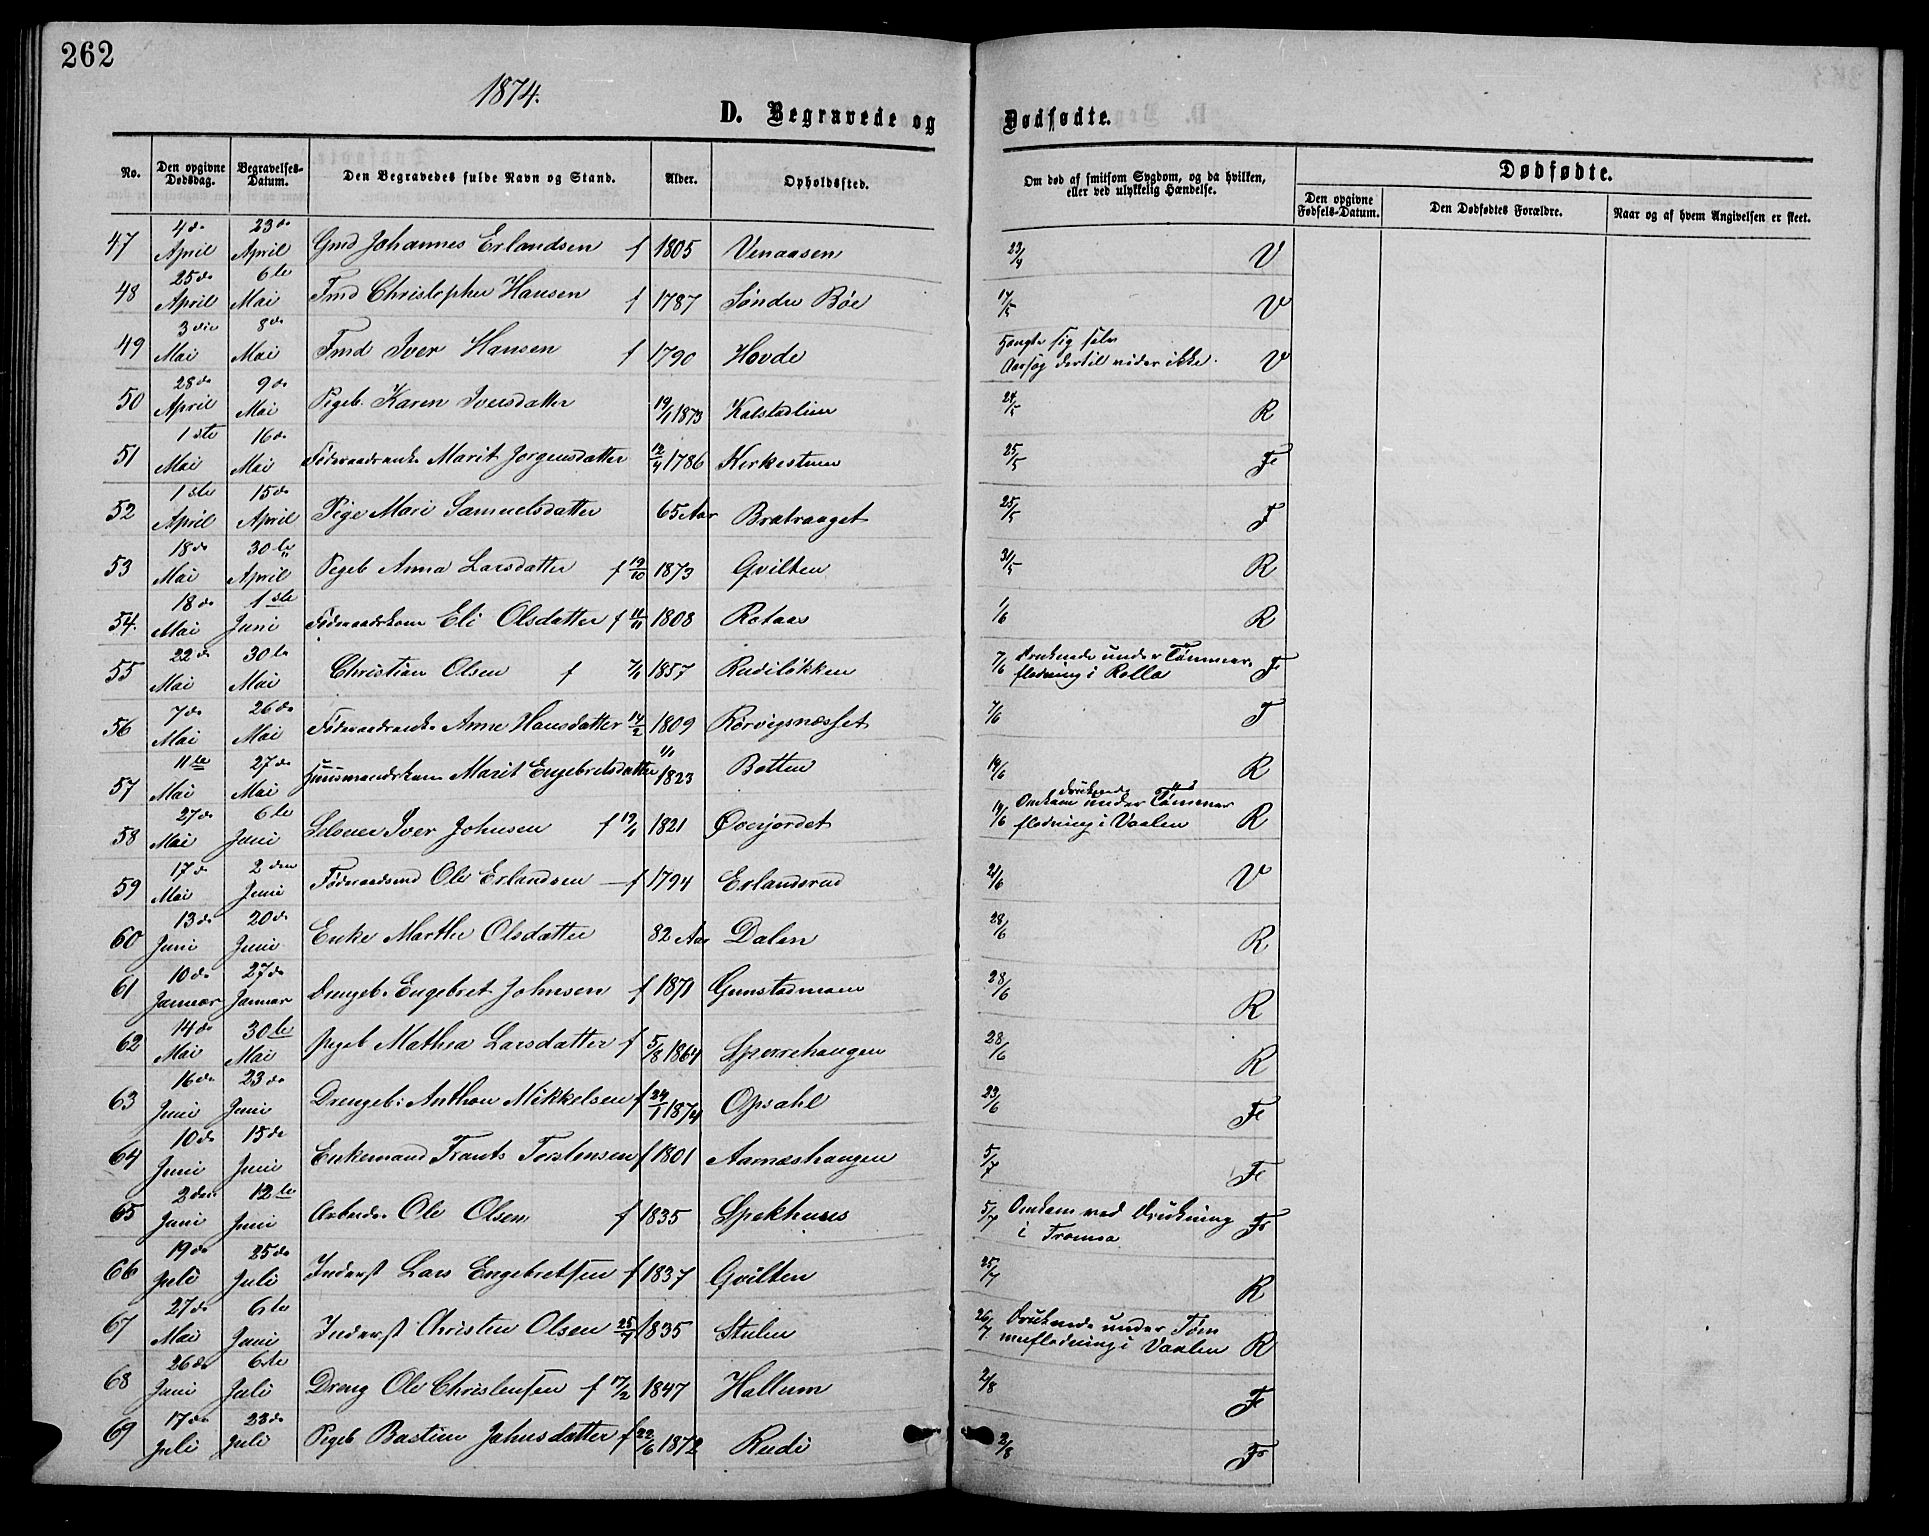 262
1874.
D. Begravede og Dødfødte.
No. Den opgivne Dødsdag. Begravelses-Datum. Den Begravedes fulde Navn og Stand. Alder. Opholdssted. Om død af smitsom Sygdom, og da hvilken, eller ved ulykkelig Hændelse. Dødfødte.
Den opgivne Fødsels-Datum. Den Dødfødtes Forældre. Naar og af hvem Angivelsen er skeet.
47 4de April 23de April Gmd Johannes Erlandsen f 1805 Venaasen 23/4 V
48 25de April 6te Mai Fmd Christopher Hansen f 1787 Søndre Bøe 17/5 V
49 3die Mai 8de Mai Fmd Iver Hansen f 1790 Hovde Hængte sig selv Aarsag dertil vides ikke. V
50 28de April 9de Mai Pigeb. Karen Iversdatter 19/1 1873 Kolstadlien 24/5 R
51 1ste Mai 16de Mai Føderaadsenke Marit Jørgensdatter 12/4 1786 Kirkestuen 25/5 F
52 1ste April 15de April Pige Mari Samuelsdatter 65 Aar Bratvanget 25/5 F
53 18de Mai 30te April Pigeb Anna Larsdatter f 19/10 1873 Gvilten 31/5 R
54. 18de Mai 1ste Juni Føderaadskone Eli Olsdatter f 11/11 1808 Rotaas 1/6 R
55 22de Mai 30te Mai Christian Olsen f 7/1 1857 Rudiløkken 7/6 Druknede under Tømmerflødning i Rolla F
56 7de Mai 26de Mai Føderaadsenke Anne Hansdatter 14/2 1809 Rørvigsnæsset 7/6 F
57 11te Mai 27de Mai Huusmandskone Marit Engebretsdatter 1/1 1823 Botten 14/6 R
58 27de Mai 6te Juni Selveier Iver Johnsen f 19/1 1821 Øverjordet 14/6 Omkom druknede under Tømmerflødning i Vaalen R
59 17de Mai 2den Juni Føderaadsmd Ole Erlandsen f 1794 Erlandsrud 21/6 V
60 13de Juni 20de Juni Enke Marthe Olsdatter 82 Aar Dalen 28/6 R
61 10de Januar 27de Januar Drengeb. Engebret Johnsen f 1871 Gunstadmoen 28/6 R
62 14de Mai 30te Mai Pigeb Mathea Larsdatter f 5/8 1864 Sperrehaugen 28/6 R
63 16de Juni 23de Juni Drengeb: Anthon Mikkelsen f 24/1 1874 Opsahl 23/6 F
64 10de Juni 15de Juni Enkemand Frants Torstensen f 1801 Aarnæshaugen 5/7 F
65 2den Juni 12te Juni Arbeider Ole Olsen f 1835 Spekhuses 5/7 Omkom ved Drukning i Tromsa F
66 19de Juli 25de Juli Inderst Lars Engebretsen f 1837 Gvilten 25/7 R
67 27de Mai 6te Juni Inderst Christen Olsen 25/7 1835 Stulen 26/7 Druknede under Tømmerflødning i Vaalen R
68 26de Juni 6te Juli Dreng Ole Christensen f 17/2 1847 Hallum 2/8 F
69 17de Juli 23de Juli Pigeb Bastine Johnsdatter f 22/6 1872 Rudi 2/8 F